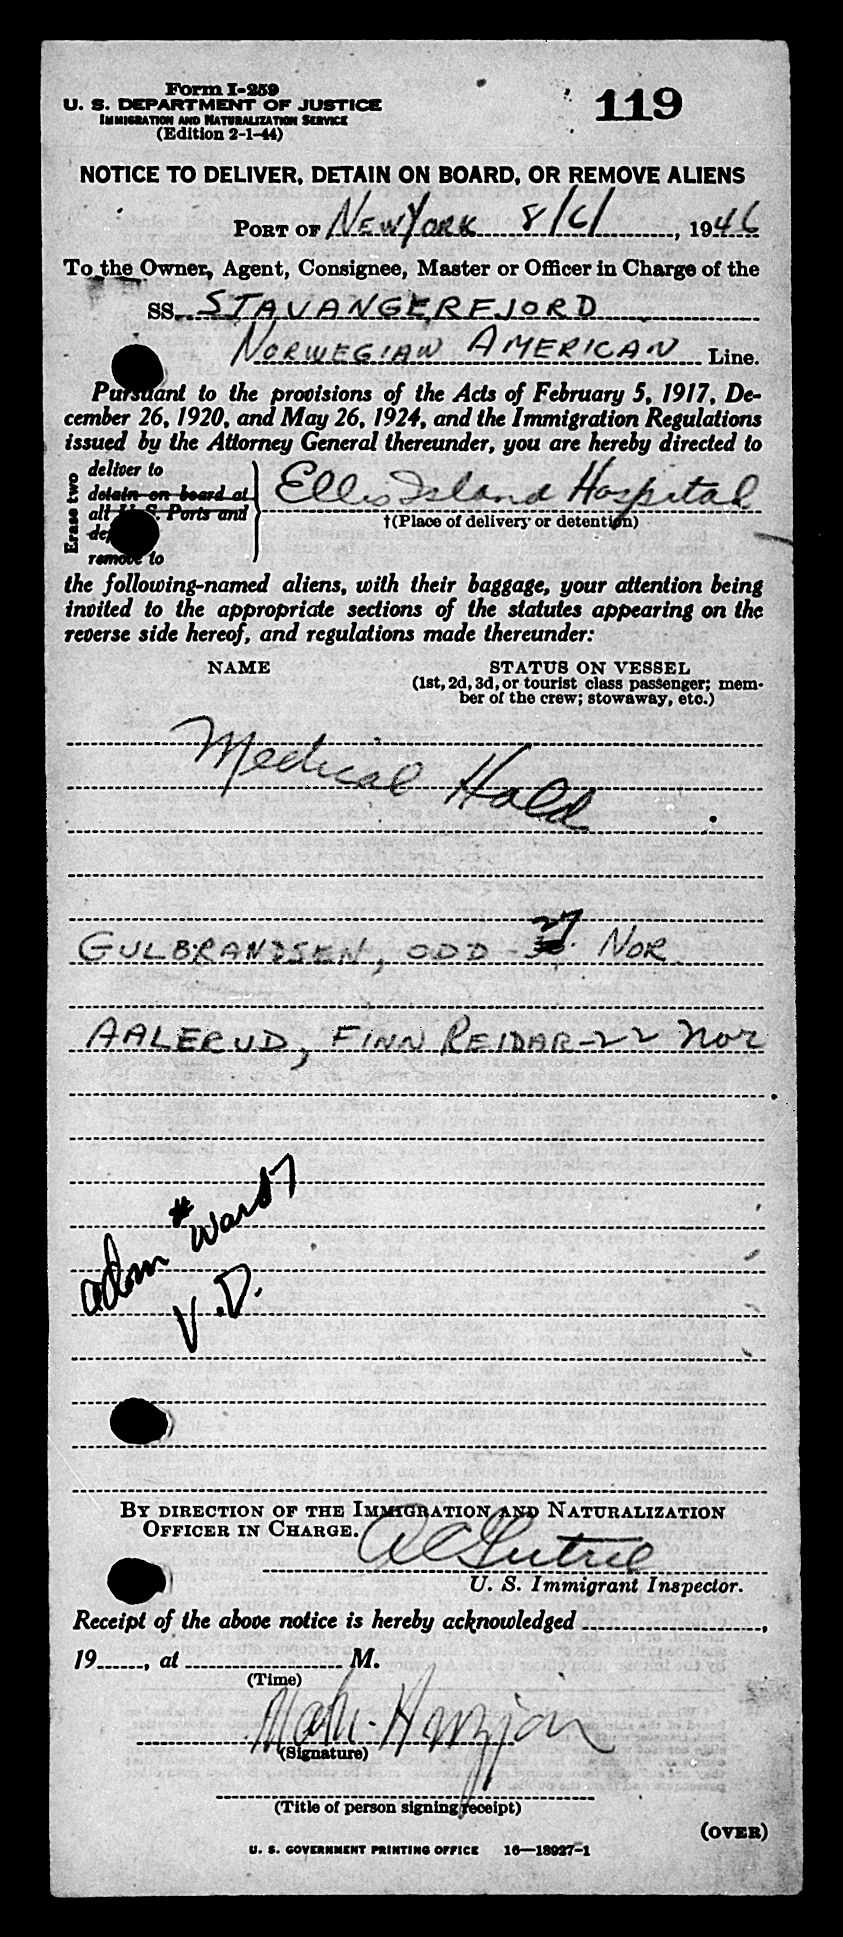 Form I-259
U. S. DEPARTMENT OF JUSTICE
IMMIGRATION AND NATURALIZATION SERVICE
(Edition 2-1-44)
119
NOTICE TO DELIVER, DETAIN ON BOARD, OR REMOVE ALIENS
PORT OF New York 8/6/, 1946
To the Owner, Agent, Consignee, Master or Officer in Charge of the
SS. STAVANGERFJORD
NORWEGIAN AMERICAN Line.
Pursuant to the provisions of the Acts of February 5, 1917, De-
cember 26, 1920, and May 26, 1924, and the Immigration Regulations
issued by the Attorney General thereunder, you are hereby directed to
Erase two
deliver to
detain on board at
all U. S. Ports and
remove to
Ellis Island Hospital
†(Place of delivery or detention)
the following-named aliens, with their baggage, your attention being
invited to the appropriate sections of the statutes appearing on the
reverse side hereof, and regulations made thereunder:
NAME STATUS ON VESSEL
(1st, 2d, 3d, or tourist class passenger; mem-
ber of the crew; stowaway, etc.)
Medical Hold
GULBRANDSEN, ODD - 27 NOR
AALERUD, FINN REIDAR - 22 Nor
adm # Ward 7
V.D.
BY DIRECTION OF THE IMMIGRATION AND NATURALIZATION
OFFICER IN CHARGE.
U. S. Immigrant Inspector.
Receipt of the above notice is hereby acknowledged ,
19 , at M.
(Time)
(Signature)
(Title of person signing receipt)
(OVER)
U. S. GOVERNMENT PRINTING OFFICE 16—18927-1